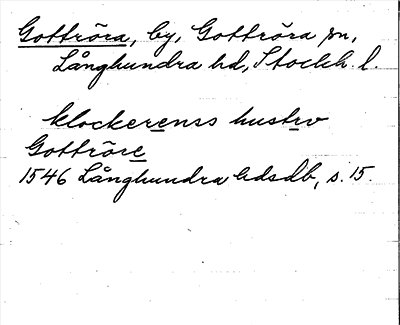 Gottröra, by, Gottröra sn,
Långhundra hd, Stockh. l.
klockerenss hustrv
Gottröre
1546 Långhundra hdsdb, s. 15.